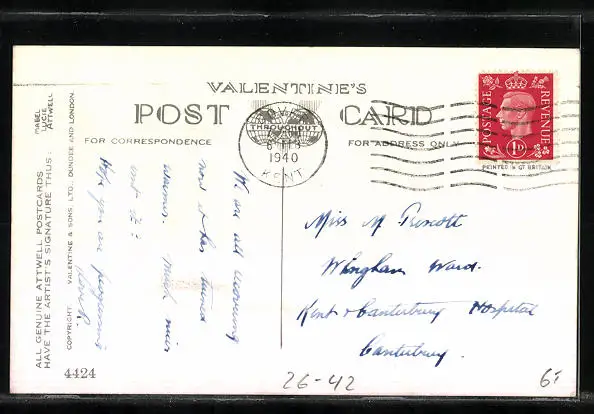 VALENTINE'S
POST CARD
FOR CORRESPONDENCE
FOR ADDRESS ONLY
THROUGHOUT
1940
KENT
POSTAGE
REVENUE
1D
PRINTED IN GT BRITAIN
MABEL
LUCIE
ATTWELL
ALL GENUINE ATTWELL POSTCARDS
HAVE THE ARTIST'S SIGNATURE THUS:
COPYRIGHT. VALENTINE & SONS, LTD., DUNDEE AND LONDON.
4424
We are all
now it has turned
warmer. Much nicer
isn't it?
Hope you are progressing
Miss M Prescott
Wingham Ward.
Kent & Canterbury Hospital
Canterbury.
26-42